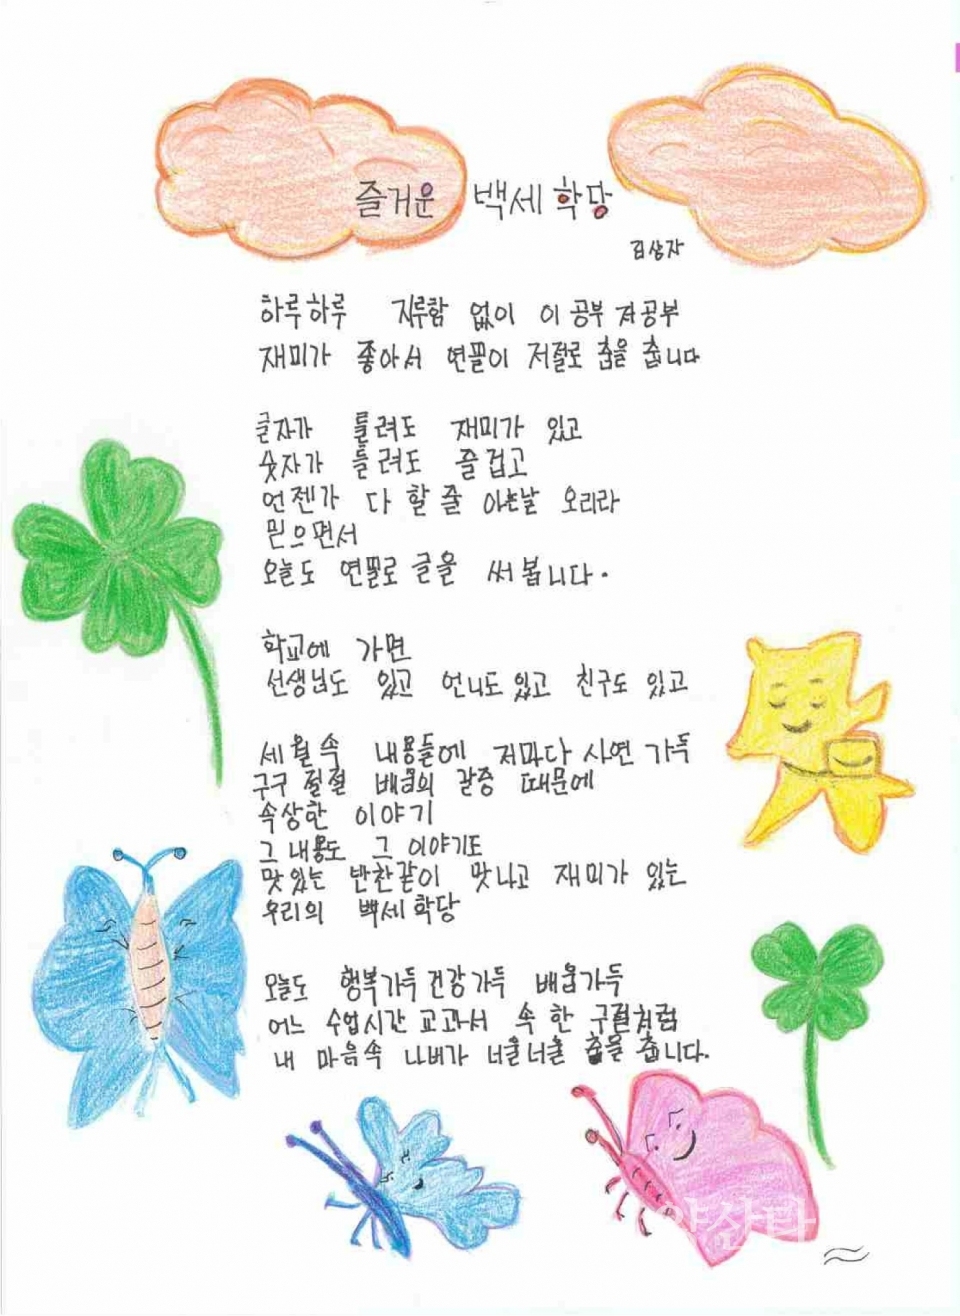 즐거운 백세 학당
김상자
하루하루 지루함 없이 이 공부 저공부
재미가 좋아서 연필이 저절로 춤을 춥니다
글자가 틀려도 재미가 있고
숫자가 틀려도 즐겁고
언젠가 다 할 줄 아는날 오리라
믿으면서
오늘도 연필로 글을 써 봅니다.
학교에 가면
선생님도 있고 언니도 있고 친구도 있고
세월 속 내용들에 저마다 사연 가득
구구 절절 배움의 갈증 때문에
속상한 이야기
그 내용도 그 이야기도
맛있는 반찬같이 맛나고 재미가 있는
우리의 백세 학당
오늘도 행복가득 건강가득 배움가득
어느 수업시간 교과서 속 한 구절처럼
내 마음속 나비가 너울너울 춤을 춥니다.